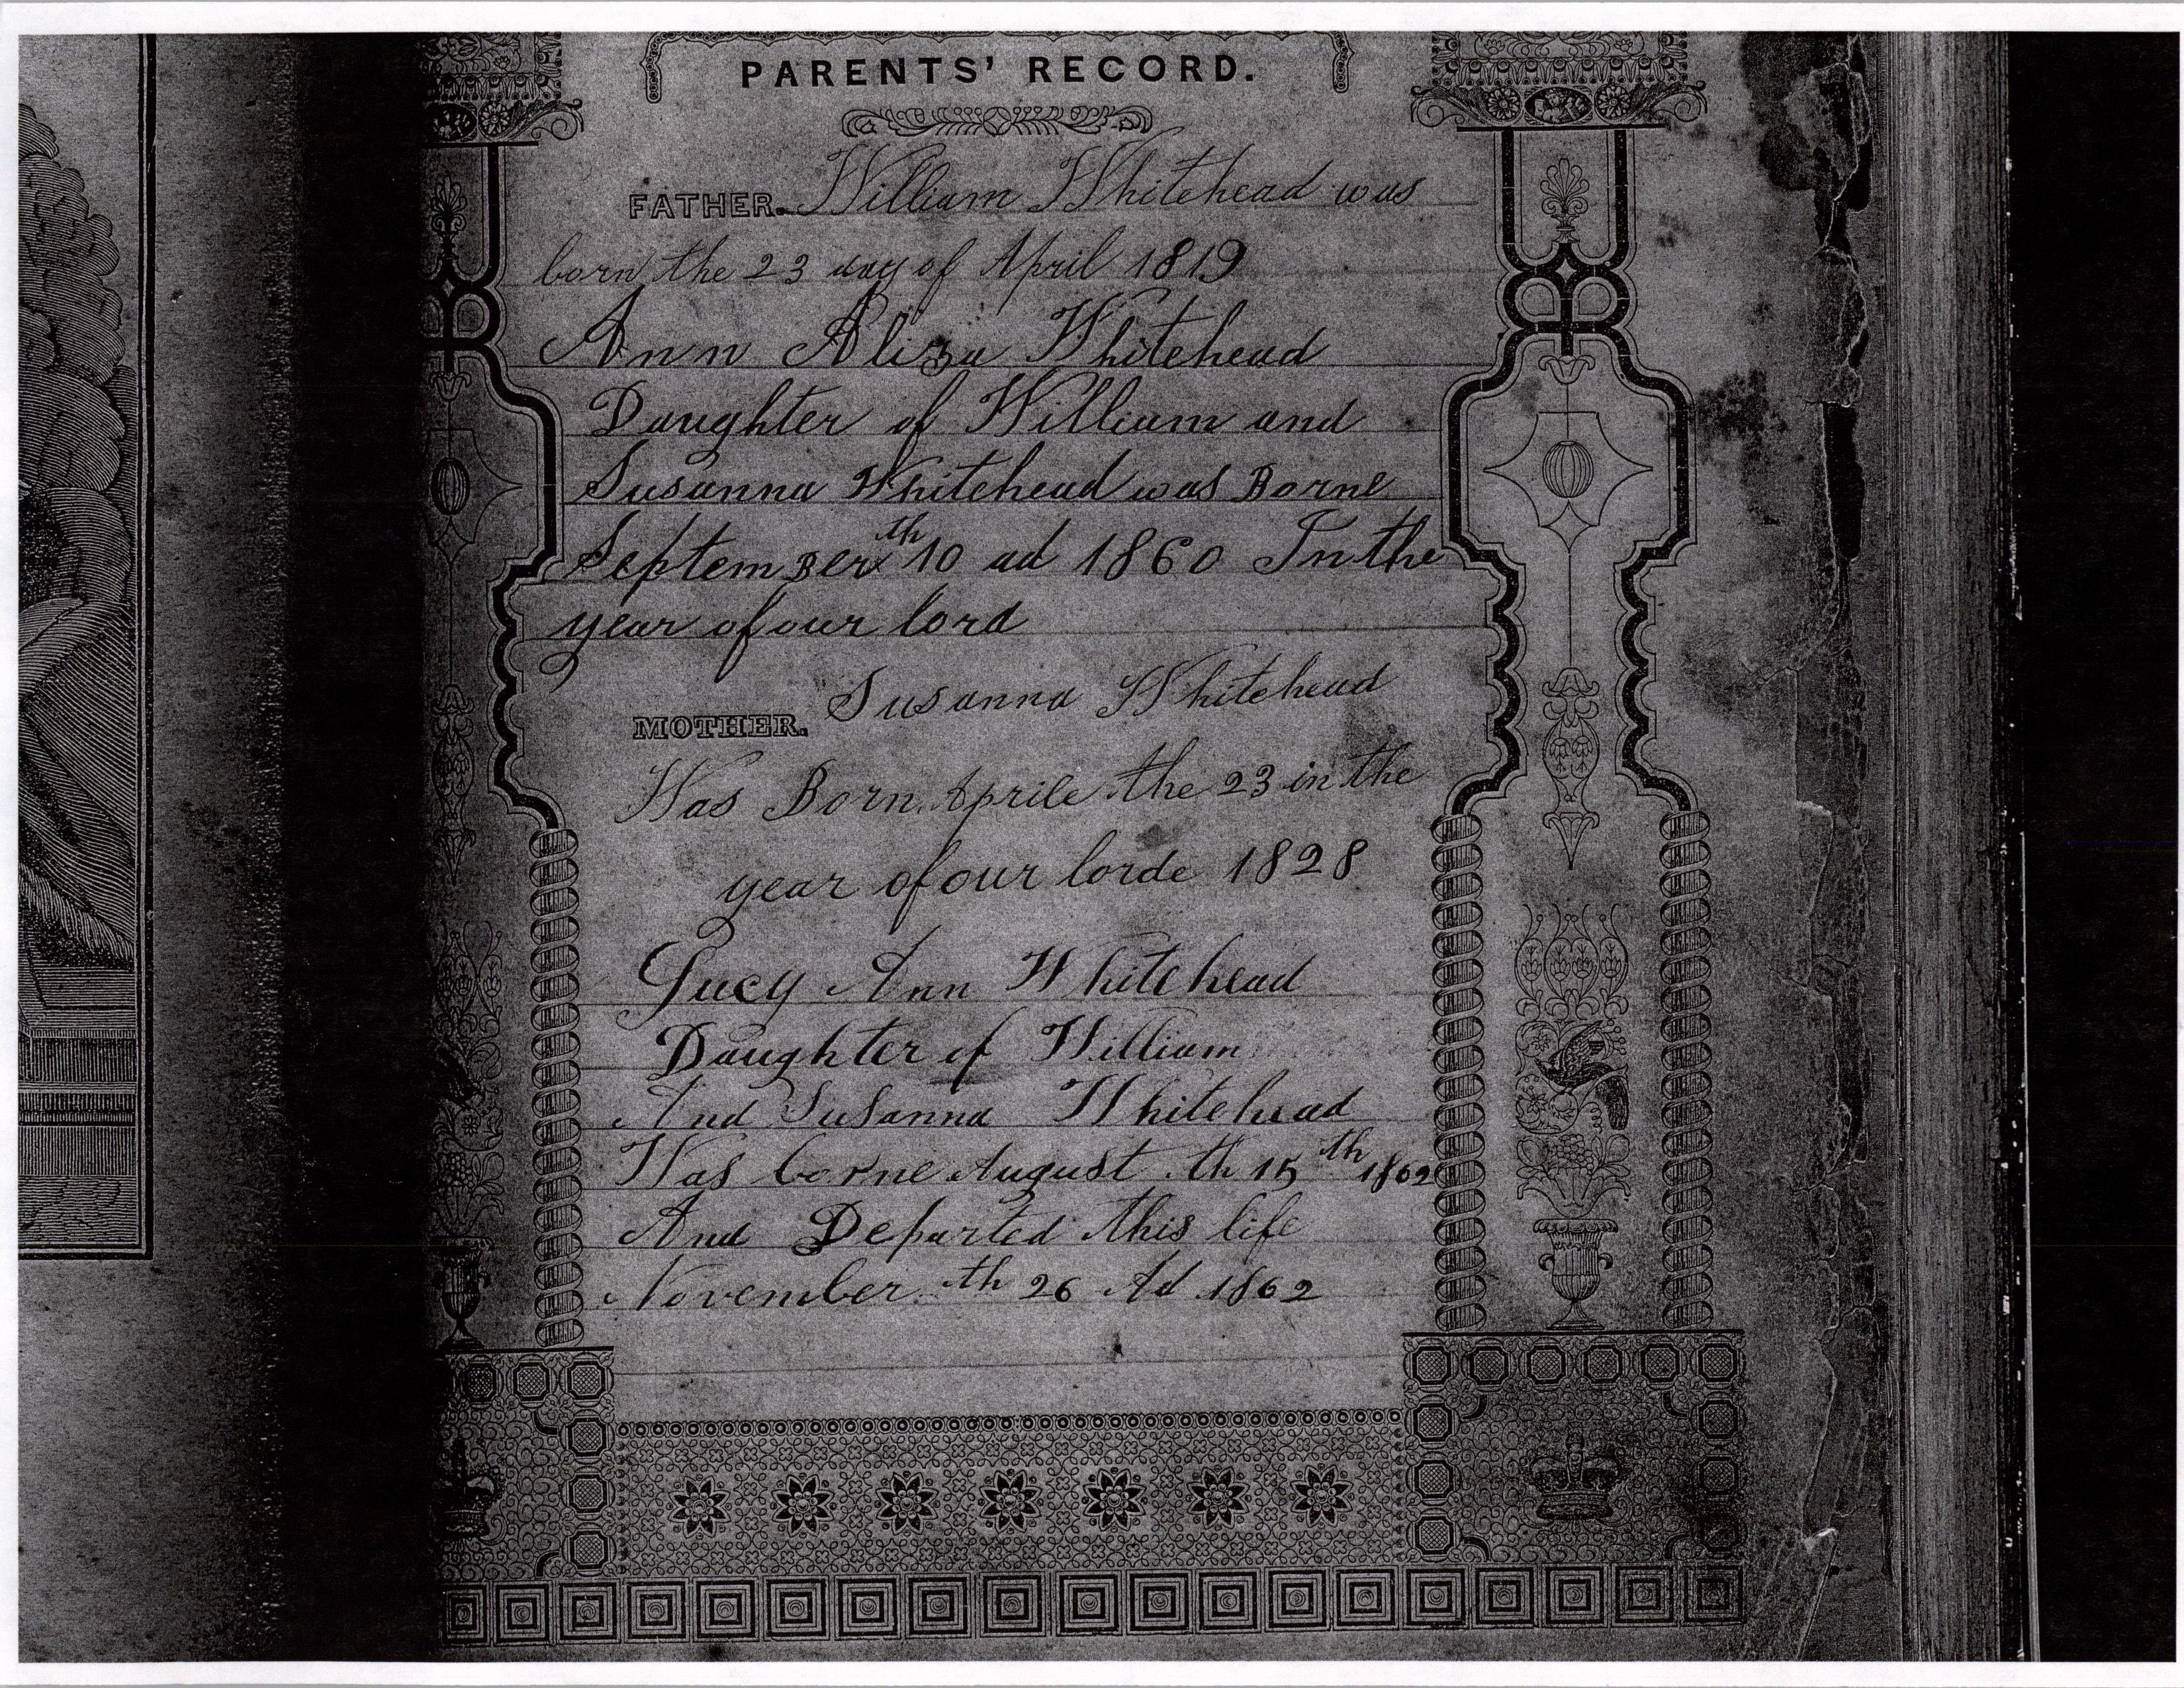 PARENTS' RECORD.
FATHER. William Whitehead was
born the 23 day of April 1819
Ann Aliza Whitehead
Daughter of William and
Susanna Whitehead was Borne
September th 10 ad 1860 In the
year of our lord
MOTHER. Susanna Whitehead
Was Born Aprile the 23 in the
year of our lorde 1828
Lucy Ann Whitehead
Daughter of William
And Susanna Whitehead
Was borne August th 15 th 1862
And Departed this life
November th 26 Ad 1862